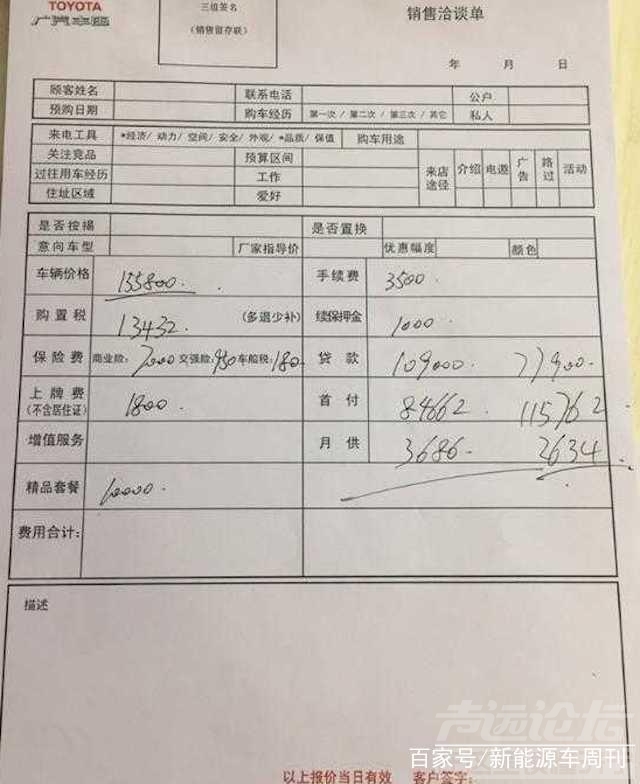 TOYOTA
广汽丰田
三组签名
(销售留存联)
销售洽谈单
年 月 日
顾客姓名 联系电话 公户
预购日期 购车经历 第一次 / 第二次 / 第三次 / 其它 私人
来电工具 *经济/ 动力/ 空间/ 安全/ 外观/ *品质/ 保值 购车用途
关注竞品 预算区间 来店途径 介绍 电邀 广告 路过 活动
过往用车经历 工作
住址区域 爱好
是否按揭 是否置换
意向车型 厂家指导价 优惠幅度 颜色
车辆价格 155800. 手续费 3500.
购置税 13432 (多退少补) 续保押金 1000
保险费 商业险: 7000 交强险: 950 车船税: 180. 贷款 109000 77900.
上牌费 (不含居住证) 1800. 首付 84662 115762
增值服务 月供 3686. 2634
精品套餐 10000.
费用合计:
描述
声远论坛
百家号/新能源车周刊
以上报价当日有效 客户签字: